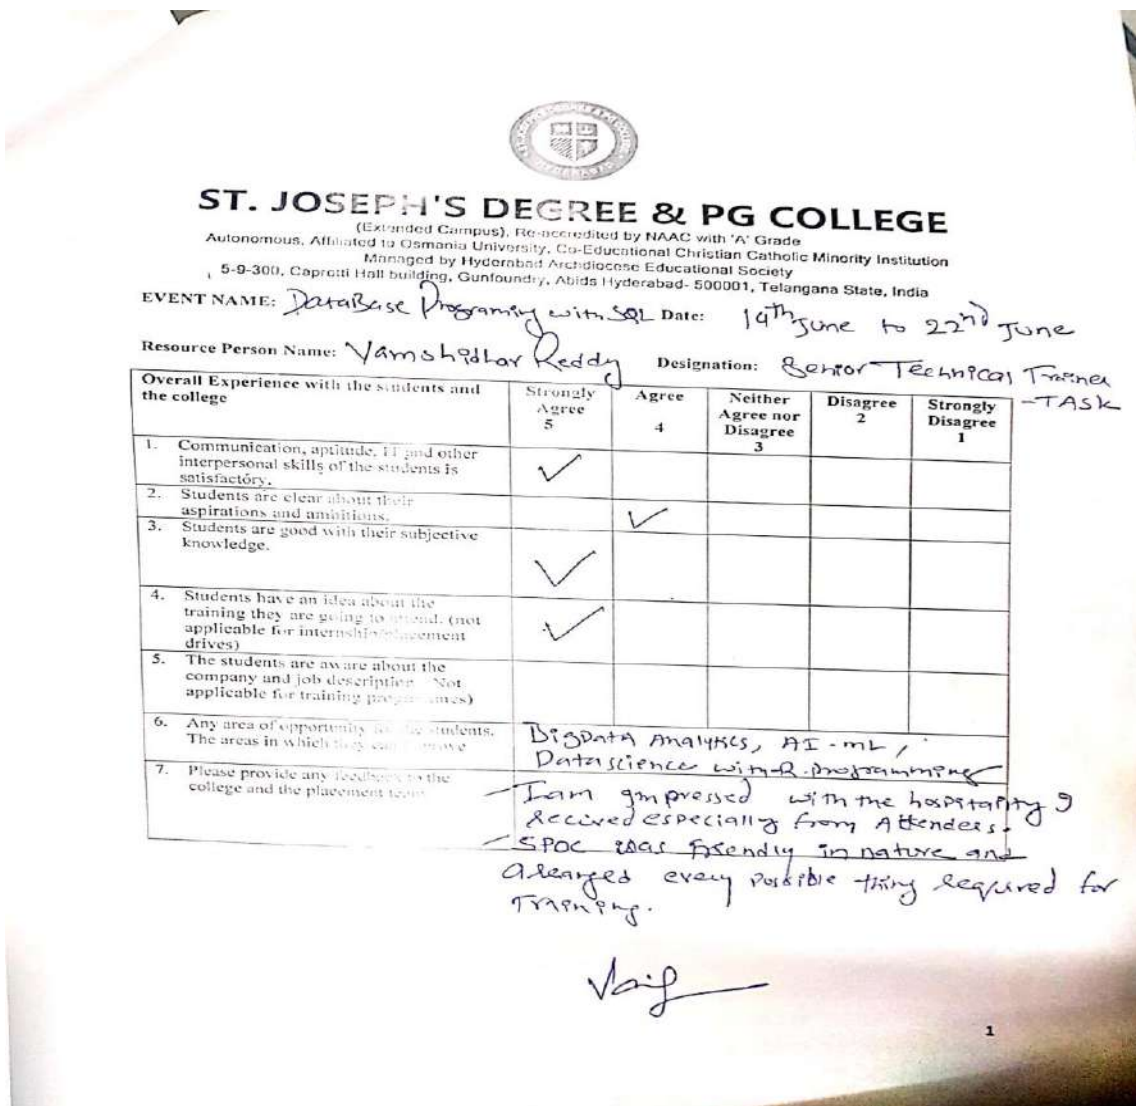 ST. JOSEPH'S DEGREE & PG COLLEGE
(Extended Campus), Re-accredited by NAAC with 'A' Grade
Autonomous, Affiliated to Osmania University, Co-Educational Christian Catholic Minority Institution
Managed by Hyderabad Archdiocese Educational Society
5-9-300, Caprotti Hall building, Gunfoundry, Abids Hyderabad- 500001, Telangana State, India
EVENT NAME: DataBase Programing with SQL Date: 14th June to 22nd June
Resource Person Name: Vamshidhar Reddy Designation: Senior Technical Trainer
-TASK
Overall Experience with the students and the college
Strongly Agree 5
Agree 4
Neither Agree nor Disagree 3
Disagree 2
Strongly Disagree 1
1. Communication, aptitude, IT and other
interpersonal skills of the students is
satisfactory.
2. Students are clear about their
aspirations and ambitions.
3. Students are good with their subjective
knowledge.
4. Students have an idea about the
training they are going to attend. (not
applicable for internship/placement
drives)
5. The students are aware about the
company and job description Not
applicable for training programmes)
6. Any area of opportunity for the students.
The areas in which they can improve
BigData Analytics, AI-ML,
Datascience with R.programming
7. Please provide any feedback to the
college and the placement team
- I am impressed with the hospitality I
recived especially from Attenders.
- SPOC was friendly in nature and
arranged every possible thing required for
Training.
1